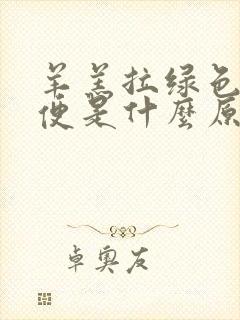 羊羔拉绿色
便是什麼原
卓奥友